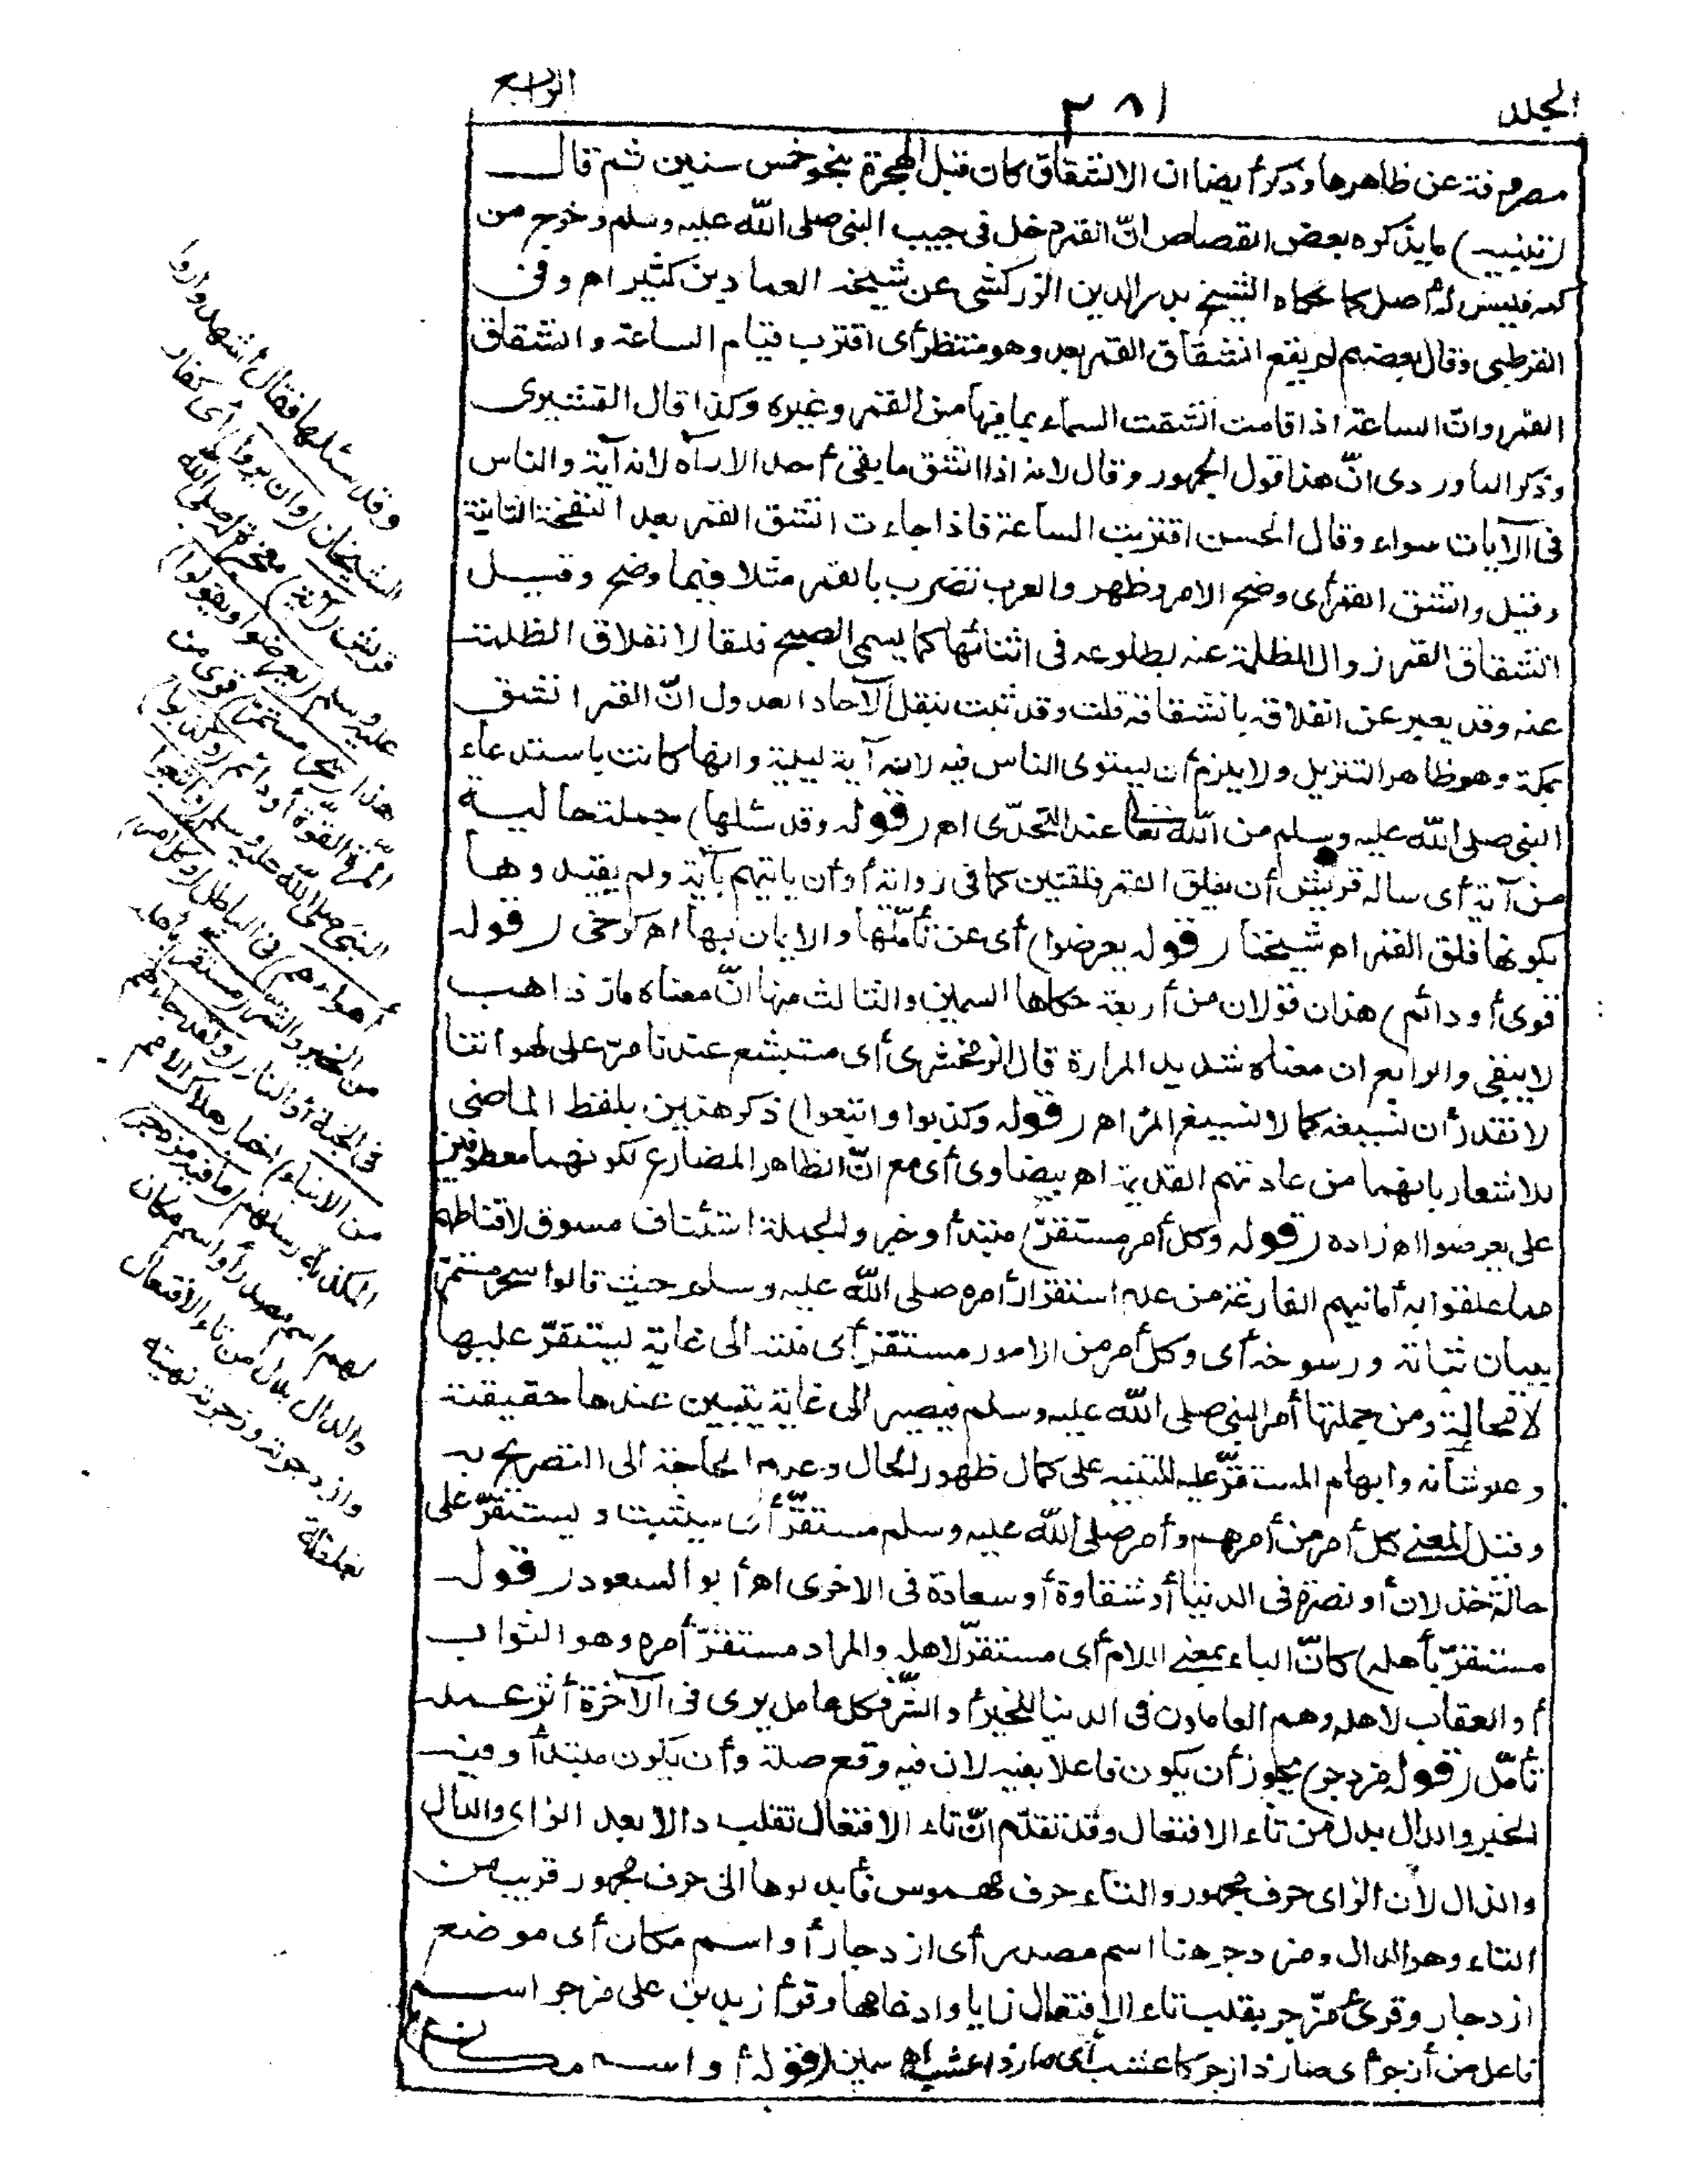 الجلد ٣٨١ الرابع
مصروفة عن ظاهرها وذكر أيضا ان الانشقاق كان قبل الهجرة بنحو خمس سنين ثم قال
(تنبيه) ما يذكره بعض القصاص انّ القمر دخل فى جيب النبى صلى الله عليه وسلم وخرج من
كمه فليس له أصل كما حكاه الشيخ بدر الدين الزركشى عن شيخه العماد بن كثير اه وفى
القرطبى وقال بعضهم لم يقع انشقاق القمر بعد وهو منتظر أى اقترب قيام الساعة وانشقاق
القمر وانّ الساعة اذا قامت انشقت السماء بما فيها من القمر وغيره وكذا قال القشيرى
وذكر الماوردى انّ هذا قول الجمهور وقال لانه اذا انشق ما بقى أحد الا رآه لانه آية والناس
فى الآيات سواء وقال الحسن اقتربت الساعة فاذا جاءت انشق القمر بعد النفخة الثانية
وقيل وانشق القمر أى وضح الامر وظهر والعرب تضرب بالقمر مثلا فيما وضح وقيل
انشقاق القمر زوال الظلمة عنه بطلوعه فى اثنائها كما يسمى الصبح فلقا لانفلاق الظلمة
عنه وقد يعبر عن انفلاقه بانشقاقه قلت وقد ثبت بنقل الآحاد العدول انّ القمر انشق
بمكة وهو ظاهر التنزيل ولا يلزم أن يستوى الناس فيه لانه آية ليلية وانها كانت باستدعاء
النبى صلى الله عليه وسلم من الله تعالى عند التحدّى اه (قوله وقد سئلها) جملة حالية
من آية أى ساله قريش أن يفلق القمر فلقتين كما فى رواية أو أن ياتيهم بآية ولم يقيدوها
بكونها فلق القمر اه شيخنا (قوله يعرضوا) أى عن تأمّلها والايمان بها اه كرخى (قوله
قوى أو دائم) هذان قولان من أربعة حكاها السمين والثالث منها انّ معناه مارّ ذاهب
لا يبقى والرابع ان معناه شديد المرارة قال الزمخشرى أى مستبشع عندنا مرّ على لهواتنا
لا نقدر أن نسيغه كما لا نسيغ المرّ اه (قوله وكذبوا واتبعوا) ذكر هذين بلفظ الماضى
للاشعار بانهما من عادتهم القديمة اه بيضاوى أى مع انّ الظاهر المضارع لكونهما معطوفين
على يعرضوا اه زاده (قوله وكل أمر مستقرّ) مبتدأ وخبر والجملة استئناف مسوق لاقناطهم
مما علقوا به أمانيهم الفارغة من عدم استقرار أمره صلى الله عليه وسلم حيث قالوا سحر مستمرّ
ببيان ثباته ورسوخه أى وكل أمر من الامور مستقرّ أى منته الى غاية ليستقرّ عليها
لا محالة ومن جملتها أمر النبى صلى الله عليه وسلم فيصير الى غاية يتبين عندها حقيقته
وعلو شأنه وابهام المستقرّ عليه للتنبيه على كمال ظهور الحال وعدم الحاجة الى التصريح به
وقيل المعنى كل أمر من أمرهم وأمره صلى الله عليه وسلم مستقرّ أى سيثبت ويستقرّ على
حالة خذلان أو نصرة فى الدنيا أو شقاوة أو سعادة فى الاخرى اه أبو السعود (قوله
مستقرّ بأهله) كانّ الباء بمعنى اللام أى مستقرّ لاهله والمراد مستقرّ أمره وهو الثواب
أو العقاب لاهله وهم العاملون فى الدنيا للخير أو الشرّ فكل عامل يرى فى الآخرة أثر عمله
تأمّل (قوله مزدجر) يجوز أن يكون فاعلا بفيه لان فيه وقع صلة وأن يكون مبتدأ وفيه
الخبر والدال بدل من تاء الافتعال وقد تقدّم انّ تاء الافتعال تقلب دالا بعد الزاى والدال
والذال لأن الزاى حرف مجهور والتاء حرف مهموس فأبدلوها الى حرف مجهور قريب من
التاء وهو الدال ومزدجر هنا اسم مصدر أى ازدجار أو اسم مكان أى موضع
ازدجار وقرئ مزّجر بقلب تاء الافتعال زايا وادغامها وقرأ زيد بن على مزجر اسم
فاعل من أزجر أى صار ذا زجر كاعشب أى صار ذا عشب اه سمين (قوله أو اسم مكان)
وقد سئلها فقال اشهدوا رواه
الشيخان (وان يروا) أى كفار
قريش (آية) معجزة له صلى الله
عليه وسلم (يعرضوا ويقولوا)
هذا (سحر مستمرّ) قوى من
المرّة القوّة أو دائم (وكذبوا)
النبى صلى الله عليه وسلم (واتبعوا
أهواءهم) فى الباطل (وكل أمر)
من الخير والشر (مستقرّ) بأهله
فى الجنة أو النار (ولقد جاءهم
من الانباء) اخبار هلاك الامم
المكذبة رسلهم (ما فيه مزدجر)
لهم اسم مصدر أو اسم مكان
والدال بدل من تاء الافتعال
وازدجرته وزجرته نهيته
بغلظة